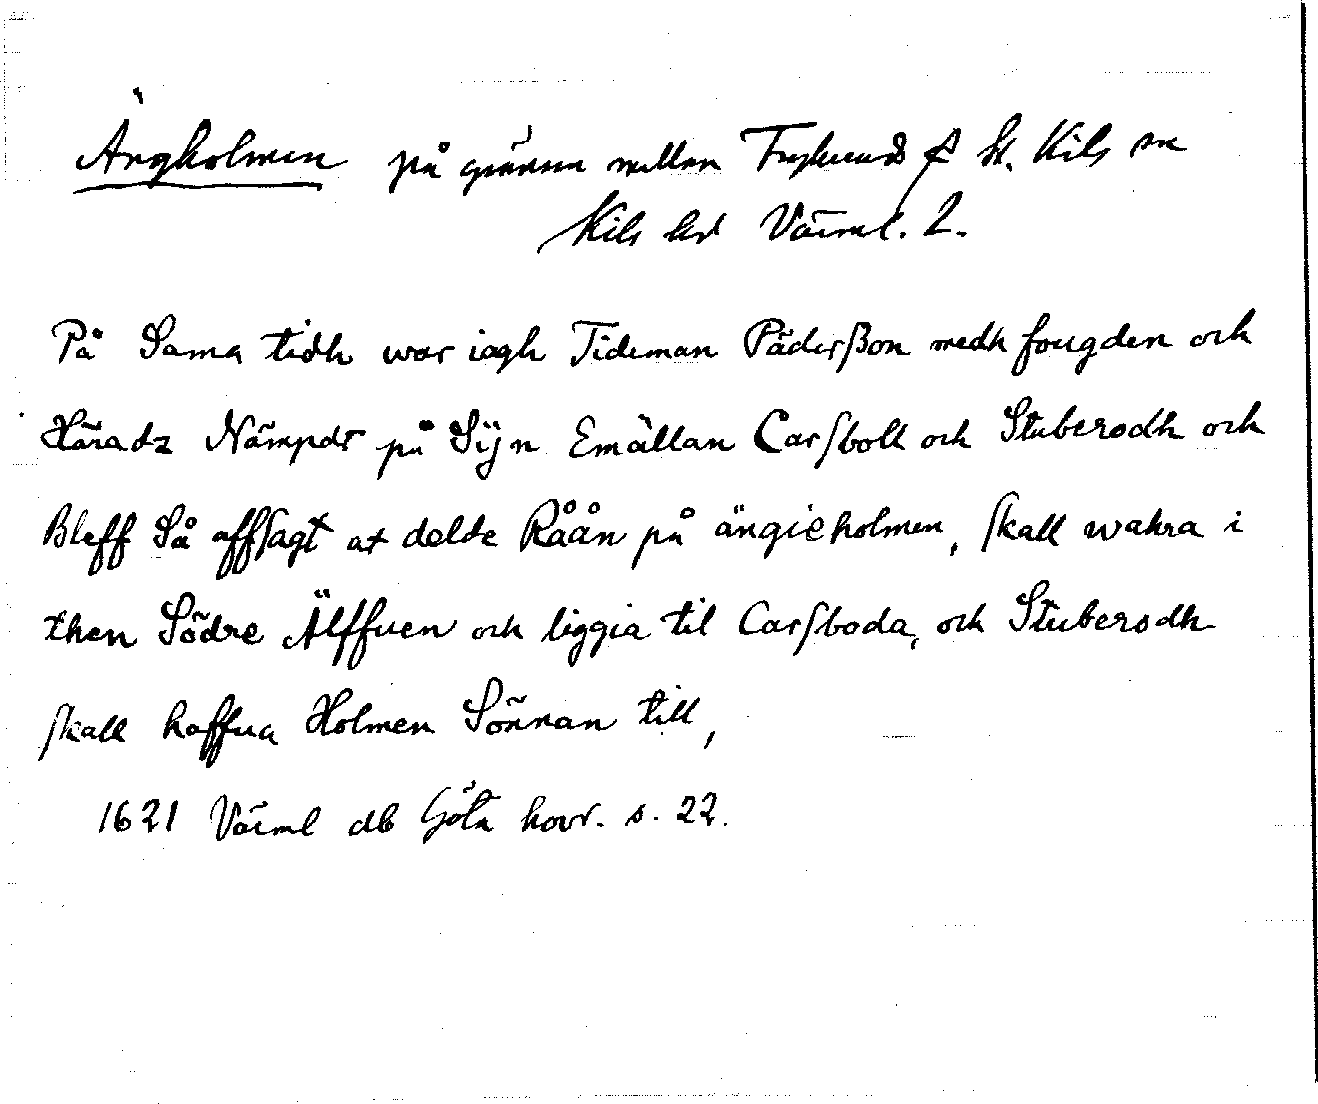 Ängholmen på gränsen mellan Frykeruds o St. Kils sn
Kils hd Värml. L.
På Sama tidh war iagh Tideman Päderßon medh fougden och
Häradz Nämpdt på Sijn Emällan Carſboll och Stuberodh och
Bleff Så affſagt at delde Råån på ängieholmen, ſkall wahra i
then Södre Älffuen och liggia til Carſboda, och Stuberodh
ſkall haffua Holmen Sönnan till,
1621 Värml db Göta hovr. s. 22.